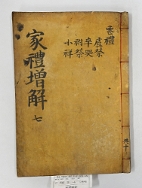 家禮增解
七
喪禮
虞祭
卒哭
祔祭
小祥